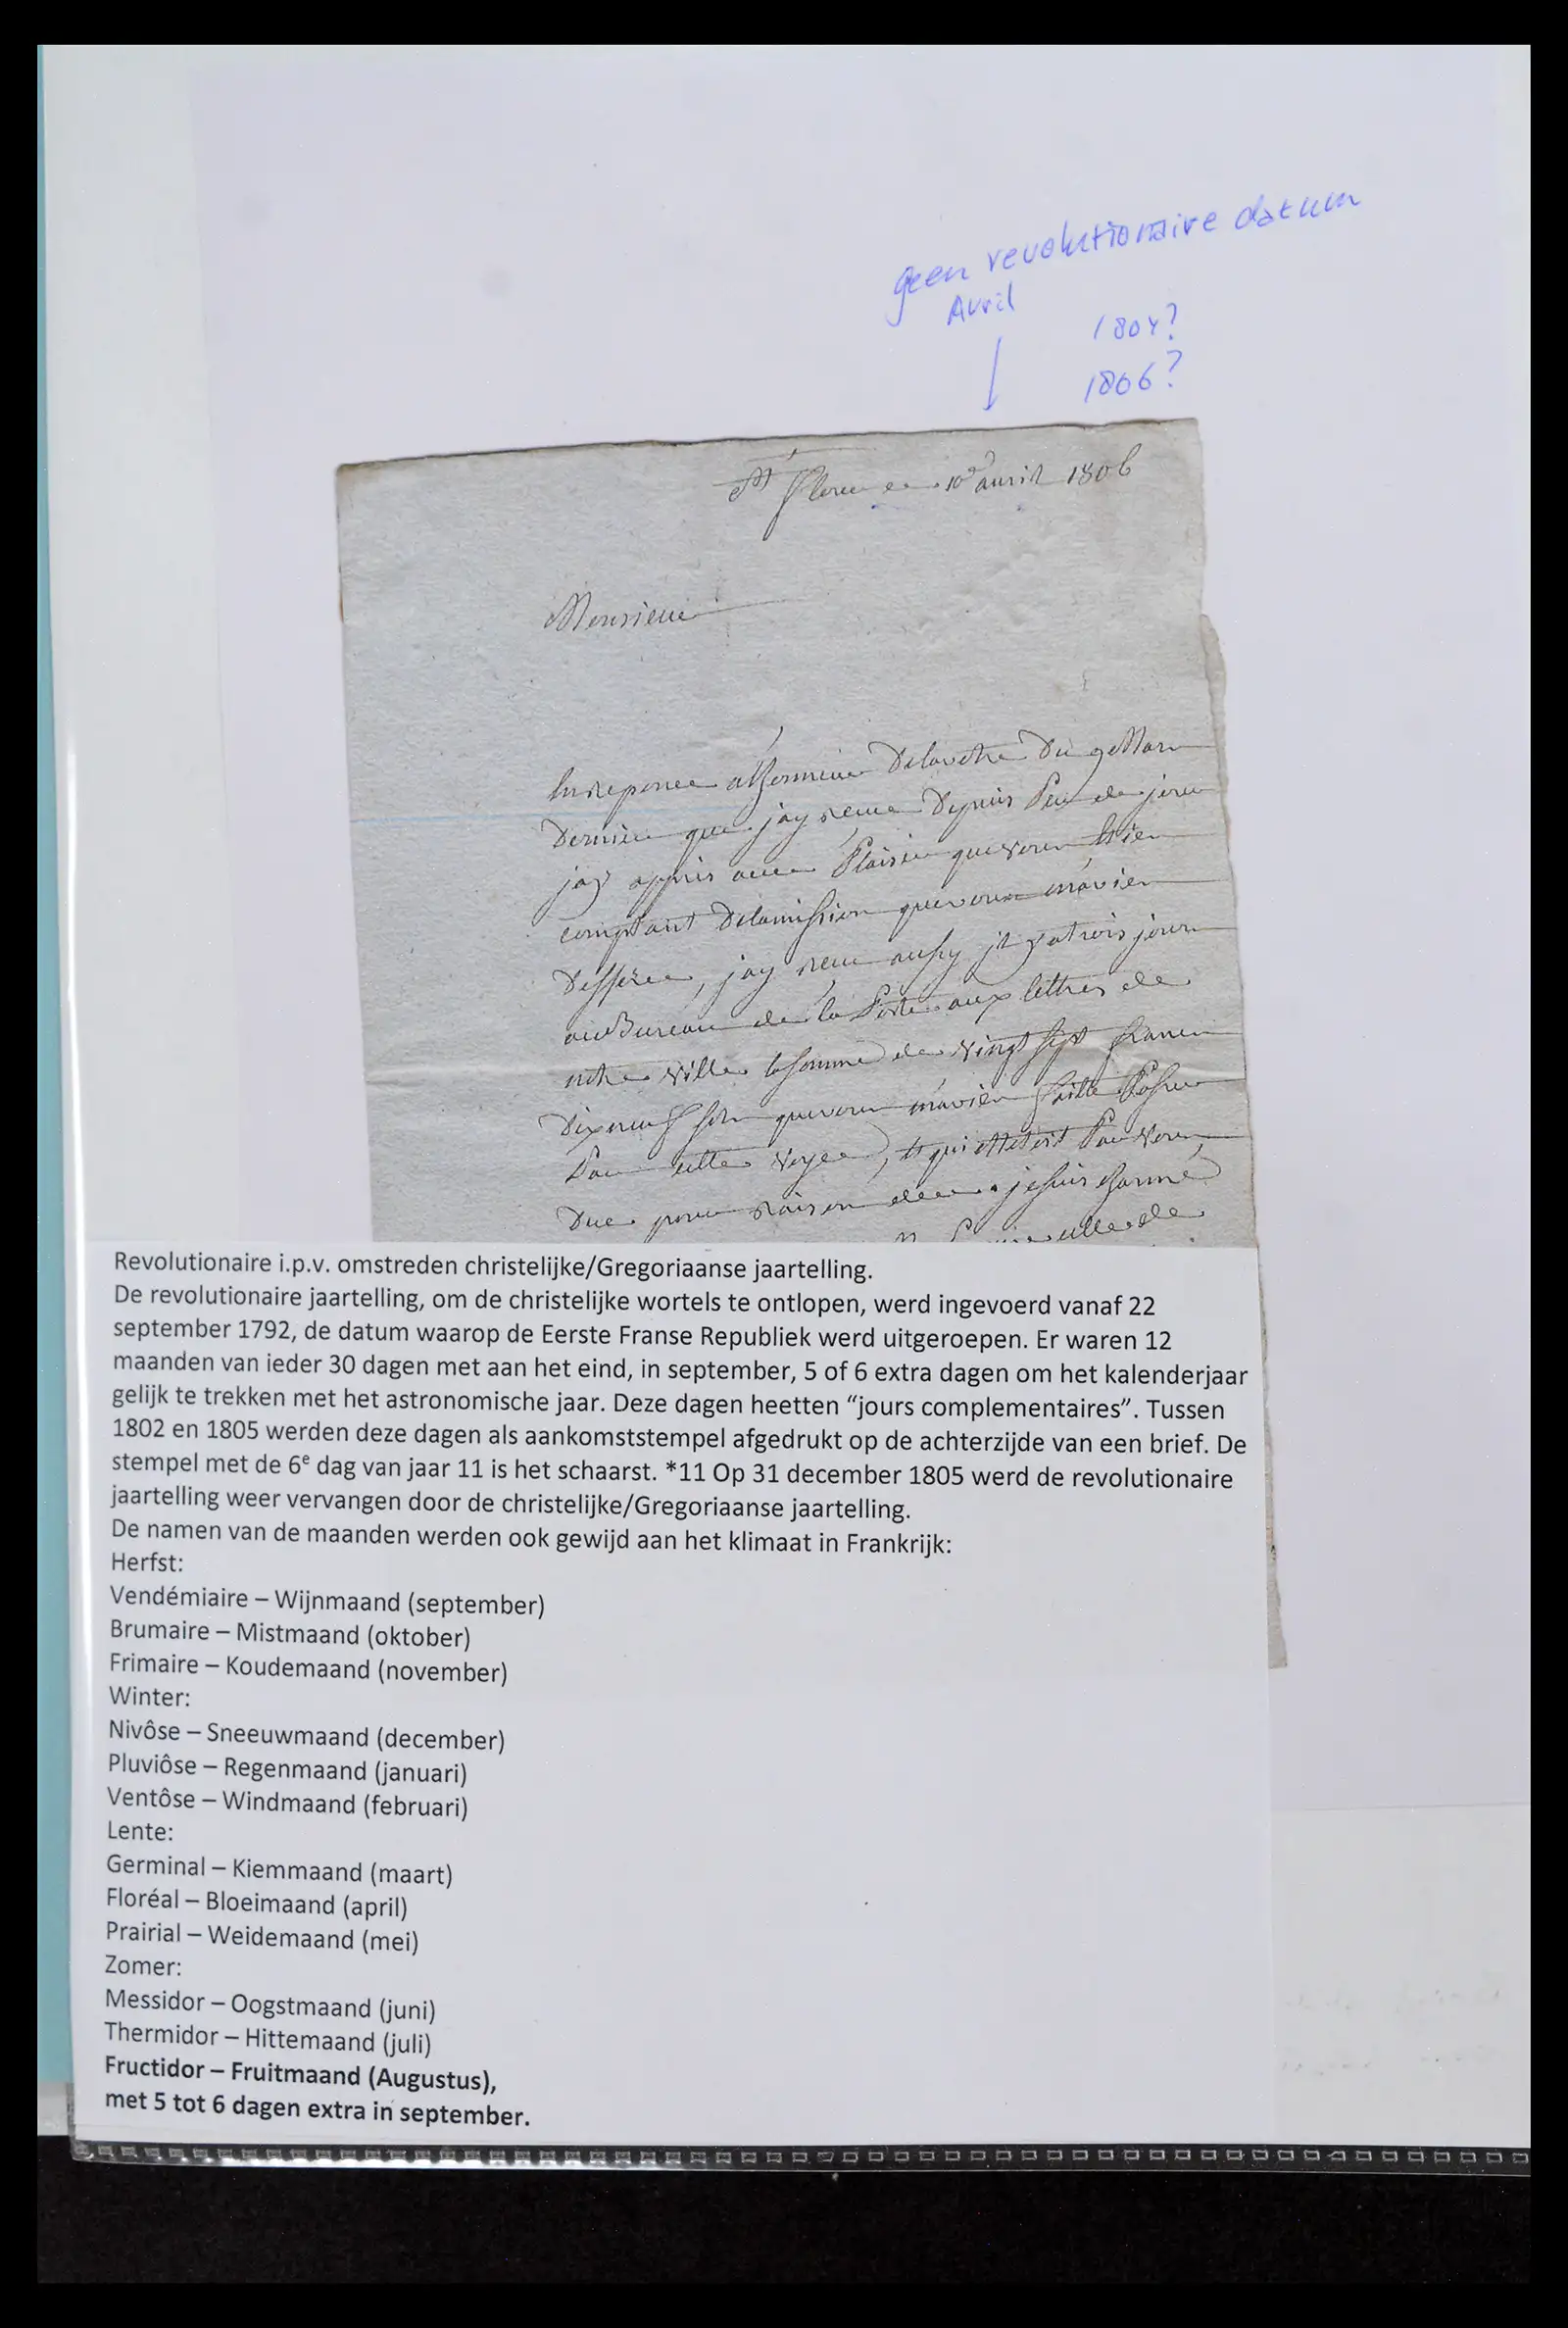 geen revolutionaire datum
Avril
1804?
1806?
St flour 10 avril 1806
Monsieur
En reponce Monsieur De la votre Du 9 Mars
Dernier que jay reçue Depuis Peu de jour
jay appris avec Plaisir que vous
comptant De la mission que vous m'avier
, jay reçu aussy il y a trois jours
au Bureau de la Poste aux lettres de
notre ville la somme de vingt sept francs
Dix neuf sols que vous m'avier faitte Passer
Par cette voye, et qui Par vous
Due pour raison de je suis charmé
celle de
Revolutionaire i.p.v. omstreden christelijke/Gregoriaanse jaartelling.
De revolutionaire jaartelling, om de christelijke wortels te ontlopen, werd ingevoerd vanaf 22
september 1792, de datum waarop de Eerste Franse Republiek werd uitgeroepen. Er waren 12
maanden van ieder 30 dagen met aan het eind, in september, 5 of 6 extra dagen om het kalenderjaar
gelijk te trekken met het astronomische jaar. Deze dagen heetten “jours complementaires”. Tussen
1802 en 1805 werden deze dagen als aankomststempel afgedrukt op de achterzijde van een brief. De
stempel met de 6e dag van jaar 11 is het schaarst. *11 Op 31 december 1805 werd de revolutionaire
jaartelling weer vervangen door de christelijke/Gregoriaanse jaartelling.
De namen van de maanden werden ook gewijd aan het klimaat in Frankrijk:
Herfst:
Vendémiaire – Wijnmaand (september)
Brumaire – Mistmaand (oktober)
Frimaire – Koudemaand (november)
Winter:
Nivôse – Sneeuwmaand (december)
Pluviôse – Regenmaand (januari)
Ventôse – Windmaand (februari)
Lente:
Germinal – Kiemmaand (maart)
Floréal – Bloeimaand (april)
Prairial – Weidemaand (mei)
Zomer:
Messidor – Oogstmaand (juni)
Thermidor – Hittemaand (juli)
Fructidor – Fruitmaand (Augustus),
met 5 tot 6 dagen extra in september.